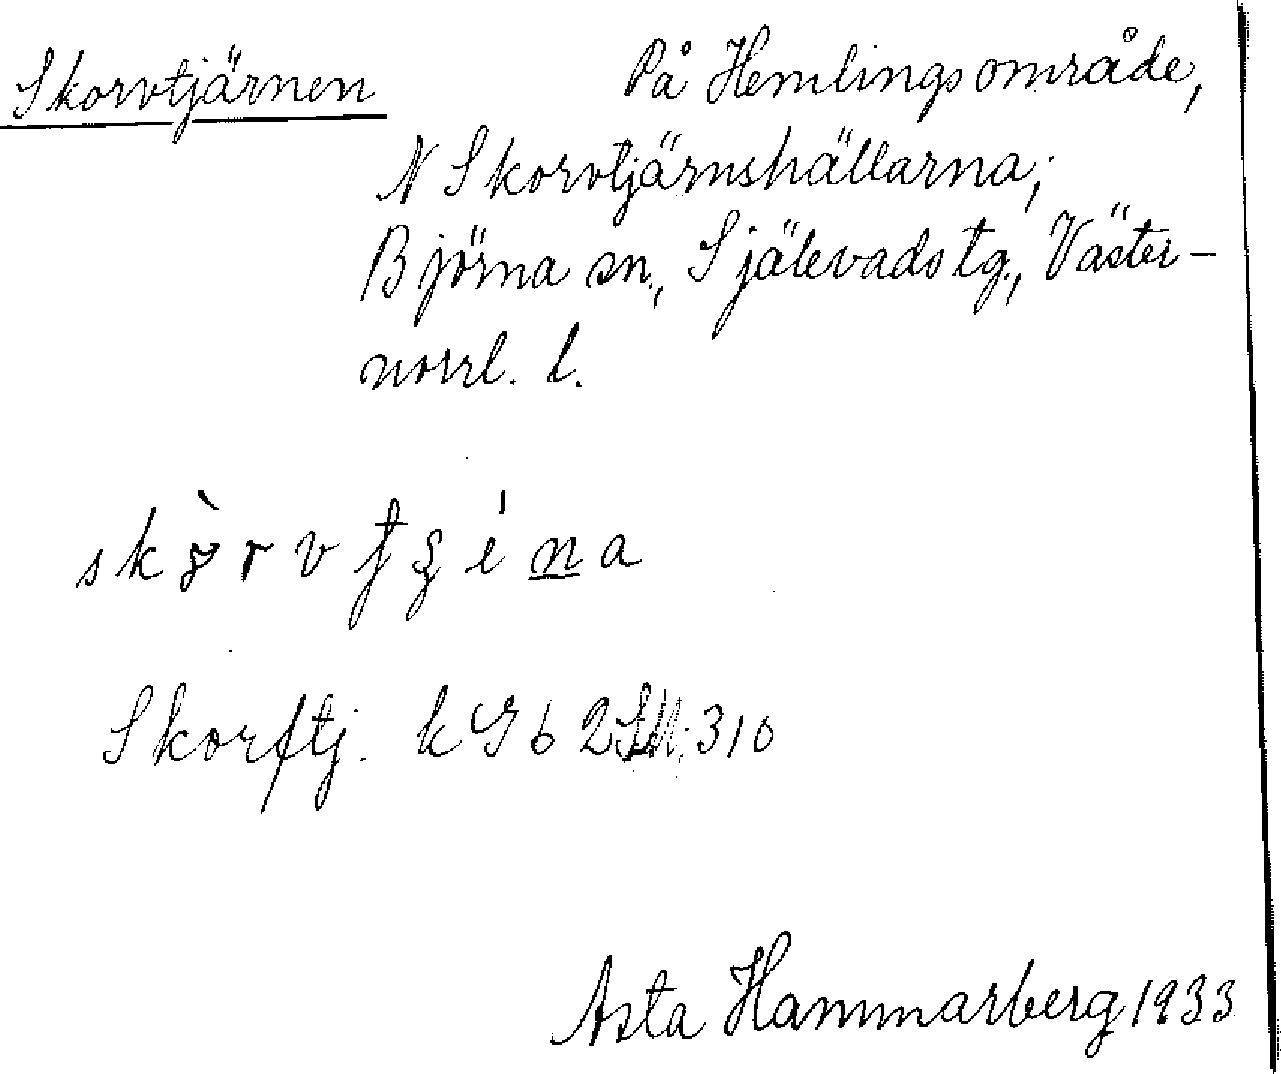 Skorvtjärnen På Hemlings område,
N Skorvtjärnshällarna;
Björna sn., Själevads tg., Väster-
norrl. l.
Skorftj. k G 6 2 310
Asta Hammarberg 1933